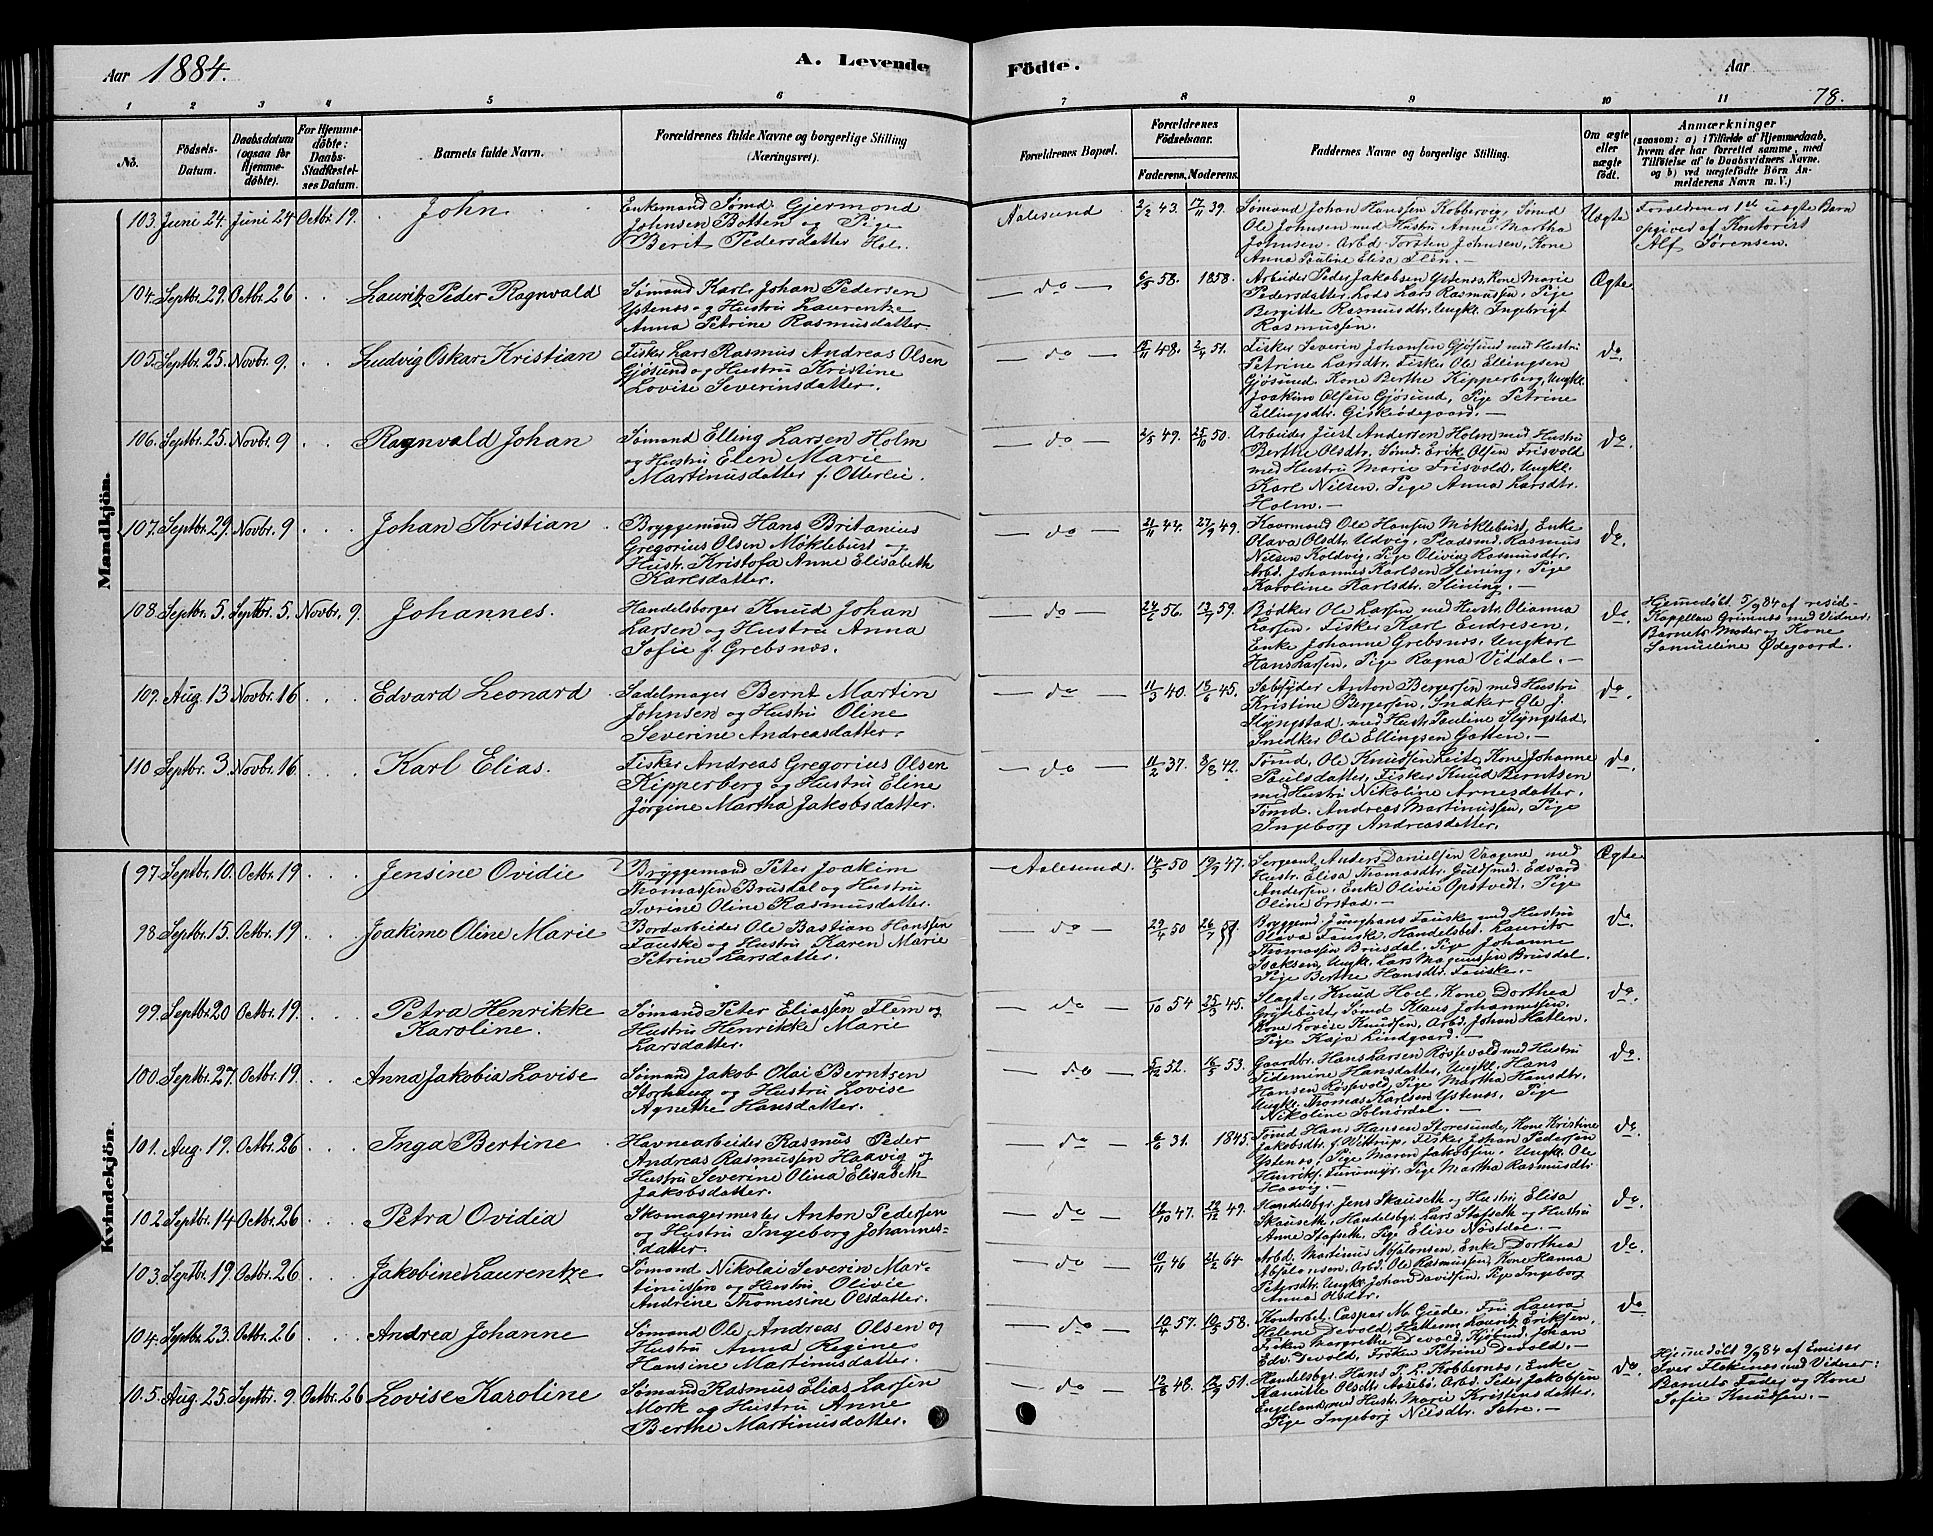 Aar 1884.
A. Levende Födte.
Aar
78.
1 2 3 4 5 6 7 8 9 10 11
No.
Födsels-Datum.
Daabsdatum (ogsaa for Hjemme-döbte).
For Hjemme-döbte: Daabs-Stadfæstel-ses Datum.
Barnets fulde Navn.
Forældrenes fulde Navne og borgerlige Stilling (Næringsvei).
Forældrenes Bopæl.
Forældrenes Födselsaar.
Faderens. Moderens.
Faddernes Navne og borgerlige Stilling.
Om ægte eller uægte født.
Anmærkninger
(saasom: a) i Tilfælde af Hjemmedaab, hvem der har forrettet samme, med Tilföielse af to Daabsvidners Navne. og b) ved uægtefödte Börn An-melderens Navn m. V.)
Mandkjön.
103. Juni 24. Juni 24 Octbr. 19. John
Enkemand Sømd. Gjermond
Johnsen Botten og Pige
Berit Pedersdatter Hol.
Aalesund 2/2 43. 17/11 39.
Sømand Johan Hanssen Kobbervig, Sømd
Ole Johnsen med Hustru Anne Martha
Johnsen. Arbd. Torsten Johnsen, Kone
Anna Pauline Elisa Flem.
Uægte
Forældrenes 1ste uægte Barn
opgivet af Kontorist
Alf Sørensen.
104. Septbr. 29. Octbr. 26 Lauritz Peder Ragnvald
Sømand Karl Johan Pedersen
Ystenes og Hustru Laurentze
Anna Petrine Rasmusdatter
do 6/5 58. 1858.
Arbeider Peder Jakobsen Ystenes, Kone Marie
Pedersdatter, Lods Lars Rasmussen, Pige
Bergitte Rasmusdtr. Ungkl. Ingebrigt
Rasmussen.
Ægte
105. Septbr. 25. Novbr. 9. Ludvig Oskar Kristian
Fisker Lars Rasmus Andreas Olsen
Gjøsund og Hustru Kristine
Lovise Severinsdatter.
do 48. 2/4 51.
Fisker Severin Johansen Gjøsund med Hustru
Petrine Larsdtr. Fisker Ole Ellingsen
Gjøsund. Kone Berthe Kipperberg, Ungkl.
Joakim Olsen Gjøsund, Pige Petrine
Ellingsdtr. Giskeødegaard.
do.
106. Septbr. 25. Novbr. 9 Ragnvald Johan
Sømand Elling Larsen Holm
og Hustru Elen Marie
Martinusdatter f. Otterlei.
do 2/5 49. 25/10 50.
Arbeider Just Andersen Holm med Hustru
Berthe Olsdtr. Sømd. Erik Olsen Frisvold
med Hustru Marie Frisvold, Ungkl.
Karl Nilsen, Pige Anna Larsdtr.
Holm.
do.
107. Septbr. 29. Novbr. 9 Johan Kristian
Bryggemand Hans Britanius
Gregorius Olsen Møklebust og
Hustr. Kristofa Anne Elisabeth
Karlsdatter.
do 21/11 44. 27/9 49.
Kaarmand Ole Hansen Møklebust, Enke
Olava Olsdtr. Udvig, Pladsmd. Rasmus
Nilsen Koldvig, Pige Olivia Rasmusdtr.
Arbd. Johannes Karlsen Slining, Pige
Karoline Karlsdtr. Slining.
do.
108. Septbr. 5. Septbr. 5. Novbr. 9. Johannes.
Handelsborger Knud Johan
Larsen og Hustru Anna
Sofie f. Grebsnæs.
do 56. 13/7 59.
Bødker Ole Larsen med Hustr. Olianna
Larsen. Fisker Karl Endresen,
Enke Johanne Grebsnæs, Ungkarl
Hans Larsen, Pige Ragna Viddal.
do.
Hjemmedøbt 5/9 84 af resid-
Kappellan Grimnes med Vidner:
Barnets Moder og Kone
Samueline Ødegaard.
109. Aug. 13 Novbr. 16 Edvard Leonard
Sadelmager Bernt Martin
Johnsen og Hustru Oline
Severine Andreasdatter.
do 11/3 40. 45.
Anton Bergersen med Hustru
Kristine Bergersen, Snedker Ole J.
Slyngstad med Hustr. Pauline Slyngstad,
Snedker Ole Ellingsen Gotten.
do.
110 Septbr. 3. Novbr. 16 Karl Elias.
Fisker Andreas Gregorius Olsen
Kipperberg og Hustru Eline
Jørgine Martha Jakobsdatter.
do 11/2 37. 42.
Tømd. Ole Knudsen Leite, Kone Johanne
Paulsdatter, Fisker Knud Berntsen
med Hustru Nikoline Arnesdatter,
Tømd. Andreas Martinussen, Pige
Ingeborg Andreasdatter.
do.
Kvindekjön.
97. Septbr. 10. Octbr. 19 Jensine Ovidie
Bryggemand Peter Joakim
Thomassen Brusdal og Hustru
Ivrine Oline Rasmusdatter.
Aalesund. 14/5 50 19/9 47.
Sergeant Anders Danielsen Vaagene med
Hustr. Elisa Thomasdtr. Guldsmed. Edvard
Andersen, Enke Olivie Opstvedt, Pige
Oline Erstad.
Ægte
98 Septbr. 15. Octbr. 19 Joakime Oline Marie
Bordarbeider Ole Bastian Hanssen
Fauske og Hustru Karen Marie
Petrine Larsdatter.
do 50 26/7
Bryggemd. Junghans Fauske med Hustru
Olava Fauske, Handelsbet. Laurits
Thomassen Brusdal. Pige Johanne
Isaksen, Ungkl. Lars Magnussen Brusdal.
Pige Berthe Hansdtr. Fauske.
do.
99. Septbr. 20 Octbr. 19. Petra Henrikke
Karoline.
Sømand Peter Eliassen Flem og
Hustru Henrikke Marie
Larsdatter.
do /10 54 25/5 45.
Slagter Knud Hoel, Kone Dorthea
Grytebust, Sømd Klaus Johannessen,
Kone Lovise Knudsen, Arbd. Johan Hatlen.
Pige Kaja Lindgaard.
do
100. Septbr. 27. Octbr. 19 Anna Jakobia Lovise
Sømand Jakob Olai Berntsen
Storhaug og Hustru Lovise
Agnethe Hansdatter.
do 5/12 52. 16/5 53.
Gaardbr. Hans Larsen Røssevold med Hustru
Hansdatter, Ungkl. Hans
Hansen Røsevold, Pige Martha Hansdtr.
Ungkl. Thomas Karlsen Ystenes, Pige
Nikoline Solnørdal.
do
101. Aug. 19. Octbr. 26 Inga Bertine
Havnearbeider Rasmus Peder
Andreas Rasmussen Haavig og
Hustru Severine Olina Elisabeth
Jakobsdatter.
do 31. 1845.
Tømd. Hans Hansen Storesunde, Kone Kristine
Jakobsdtr. f. Wittrup, Fisker Johan Pedersen
Ystenes, Pige Maren Jakobsen, Ungkl. Ole
Henriks. Furemyr. Pige Martha Rasmusdtr.
Haavig.
do.
102. Septbr. 14 Octbr. 26 Petra Ovidia
Skomagermester Anton Pedersen
og Hustru Ingeborg Johannes-
datter.
do 47. 49.
Handelsbgr. Jens Skauseth og Hustru Elisa
Skauseth, Handelsbgr. Lars Stafseth og Hustru
Anne Stafseth, Pige Elise Nøstdal.
do.
103. Septbr. 19. Octbr. 26. Jakobine Laurentze
Sømand Nikolai Severin Mar-
tinussen og Hustru Olivie
Andrine Thomesine Olsdatter.
do 10/11 46 21/2 64.
Arbd. Martinus Absalonsen, Enke Dorthea
Absalonsen, Arbd. Ole Rasmussen, Kone Hanna
Petersdtr. Ungkl. Johan Davidsen, Pige Ingeborg
Anna Olsdtr.
do.
104. Septbr. 23. Octbr. 26 Andrea Johanne
Sømand Ole Andreas Olsen og
Hustru Anna Regine
Hansine Martinusdatter.
do 10/4 57. 10/5 58.
Kontorbet. Casper M. Giede. Fru Laura
Helene Devold, Hattem. Lauritz Eriksen,
Frøken Margrethe Devold. Kjøbmd. Johan
Edv. Devold, Frøken Petrine Devold.
do
105. Aug. 25. Septbr. 9. Octbr. 26 Lovise Karoline
Sømand Rasmus Elias Larsen
Mork og Hustru Anne
Berthe Martinusdatter.
do 48. 51.
Handelsbgr. Hans P. L. Kobbernes, Enke
Olsdtr. Aasebø. Arbd. Peder Jakobsen
Engeland med Hustr. Marie Kristensdatter,
Pige Ingeborg Nilsdtr. Sætre.
do.
Hjemmedøbt 9/9 84 af Emisær
Iver Flekenes med Vidner:
Barnets Fader og Kone
Sofie Knudsen.